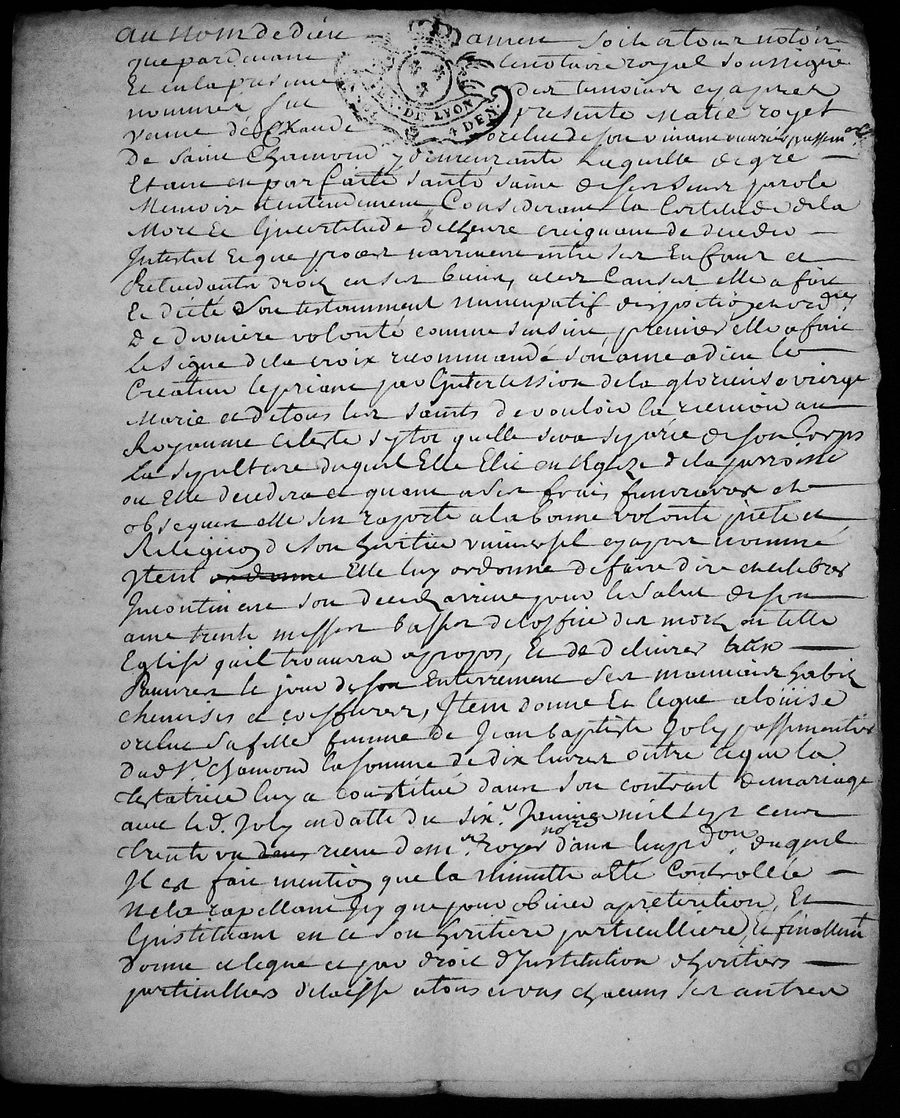 au nom de dieu amen soit atous notoire
que pardevant le notaire royal soussigné
Et en la presence des temoins cy apres
nommes fut presente Marie royet
veuve de orelut de son vivant ouvrier passem.er
GEN. DE LYON
4 DEN.
De Saint Chamond y demeurante laquelle de gre —
Etant en parfaite santé saine de ses sens parole
Memoire et entendement Considerant la Certitude de la
Mort Et Lincertitude de lheure craignant de deceder —
Intestat Et que proces narrivent entre ses Enfans et
Pretendants droit en ses biens, a ces Causes elle a fait
Et dicté Son testamment nuncupatif disposition et ord.re
De derniere volonté comme sensuit, premier elle a fait
le signe de la croix recommandé son ame a dieu le —
Createur le priant par lintercession de la glorieuse vierge
Marie et de tous les saints de vouloir la recevoir au
Royaume Celeste sytot quelle sera séparée de son Corps
La sepulture duquel Elle Elit en lEglize de la parroisse
ou Elle decedera et quant a ses frais funeraires et
obseques elle sen raporte a la bonne volonté piete et
Religion de son heritier universel cy apres nommé
Item ordonne Elle luy ordonne de faire dire et celebrer
Incontinent son deces arrivé pour le salut de son
ame trente messes basses de loffice des morts en telle
Eglise quil trouvera a propos, Et de delivrer a trois —
Pauvres le jour de son enterrement ses mauvais habits
chemises et coeffures, Item donne Et legue a loüise
orelut sa fille femme de Jean baptiste Joly passimentier
Dud. St. Chamond la somme de dix livres outre ce que la
testatrice luy a constitué dans son contract de mariage
avec led. Joly en datte du six.e Janvier mil sept cents
trente un dans receu de m.e royer no.re dans lexp.don duquel
Il est fait mention que la minutte a été Controllée —
Ne la rapellant Icy que pour obvier a préterition, Et
Linstituant en ce son heritiere particulliere, Et finallem.t
donne et legue et par droit d'Institution d'heritiers —
particulliers delaisse a tous et un chacuns ses autres